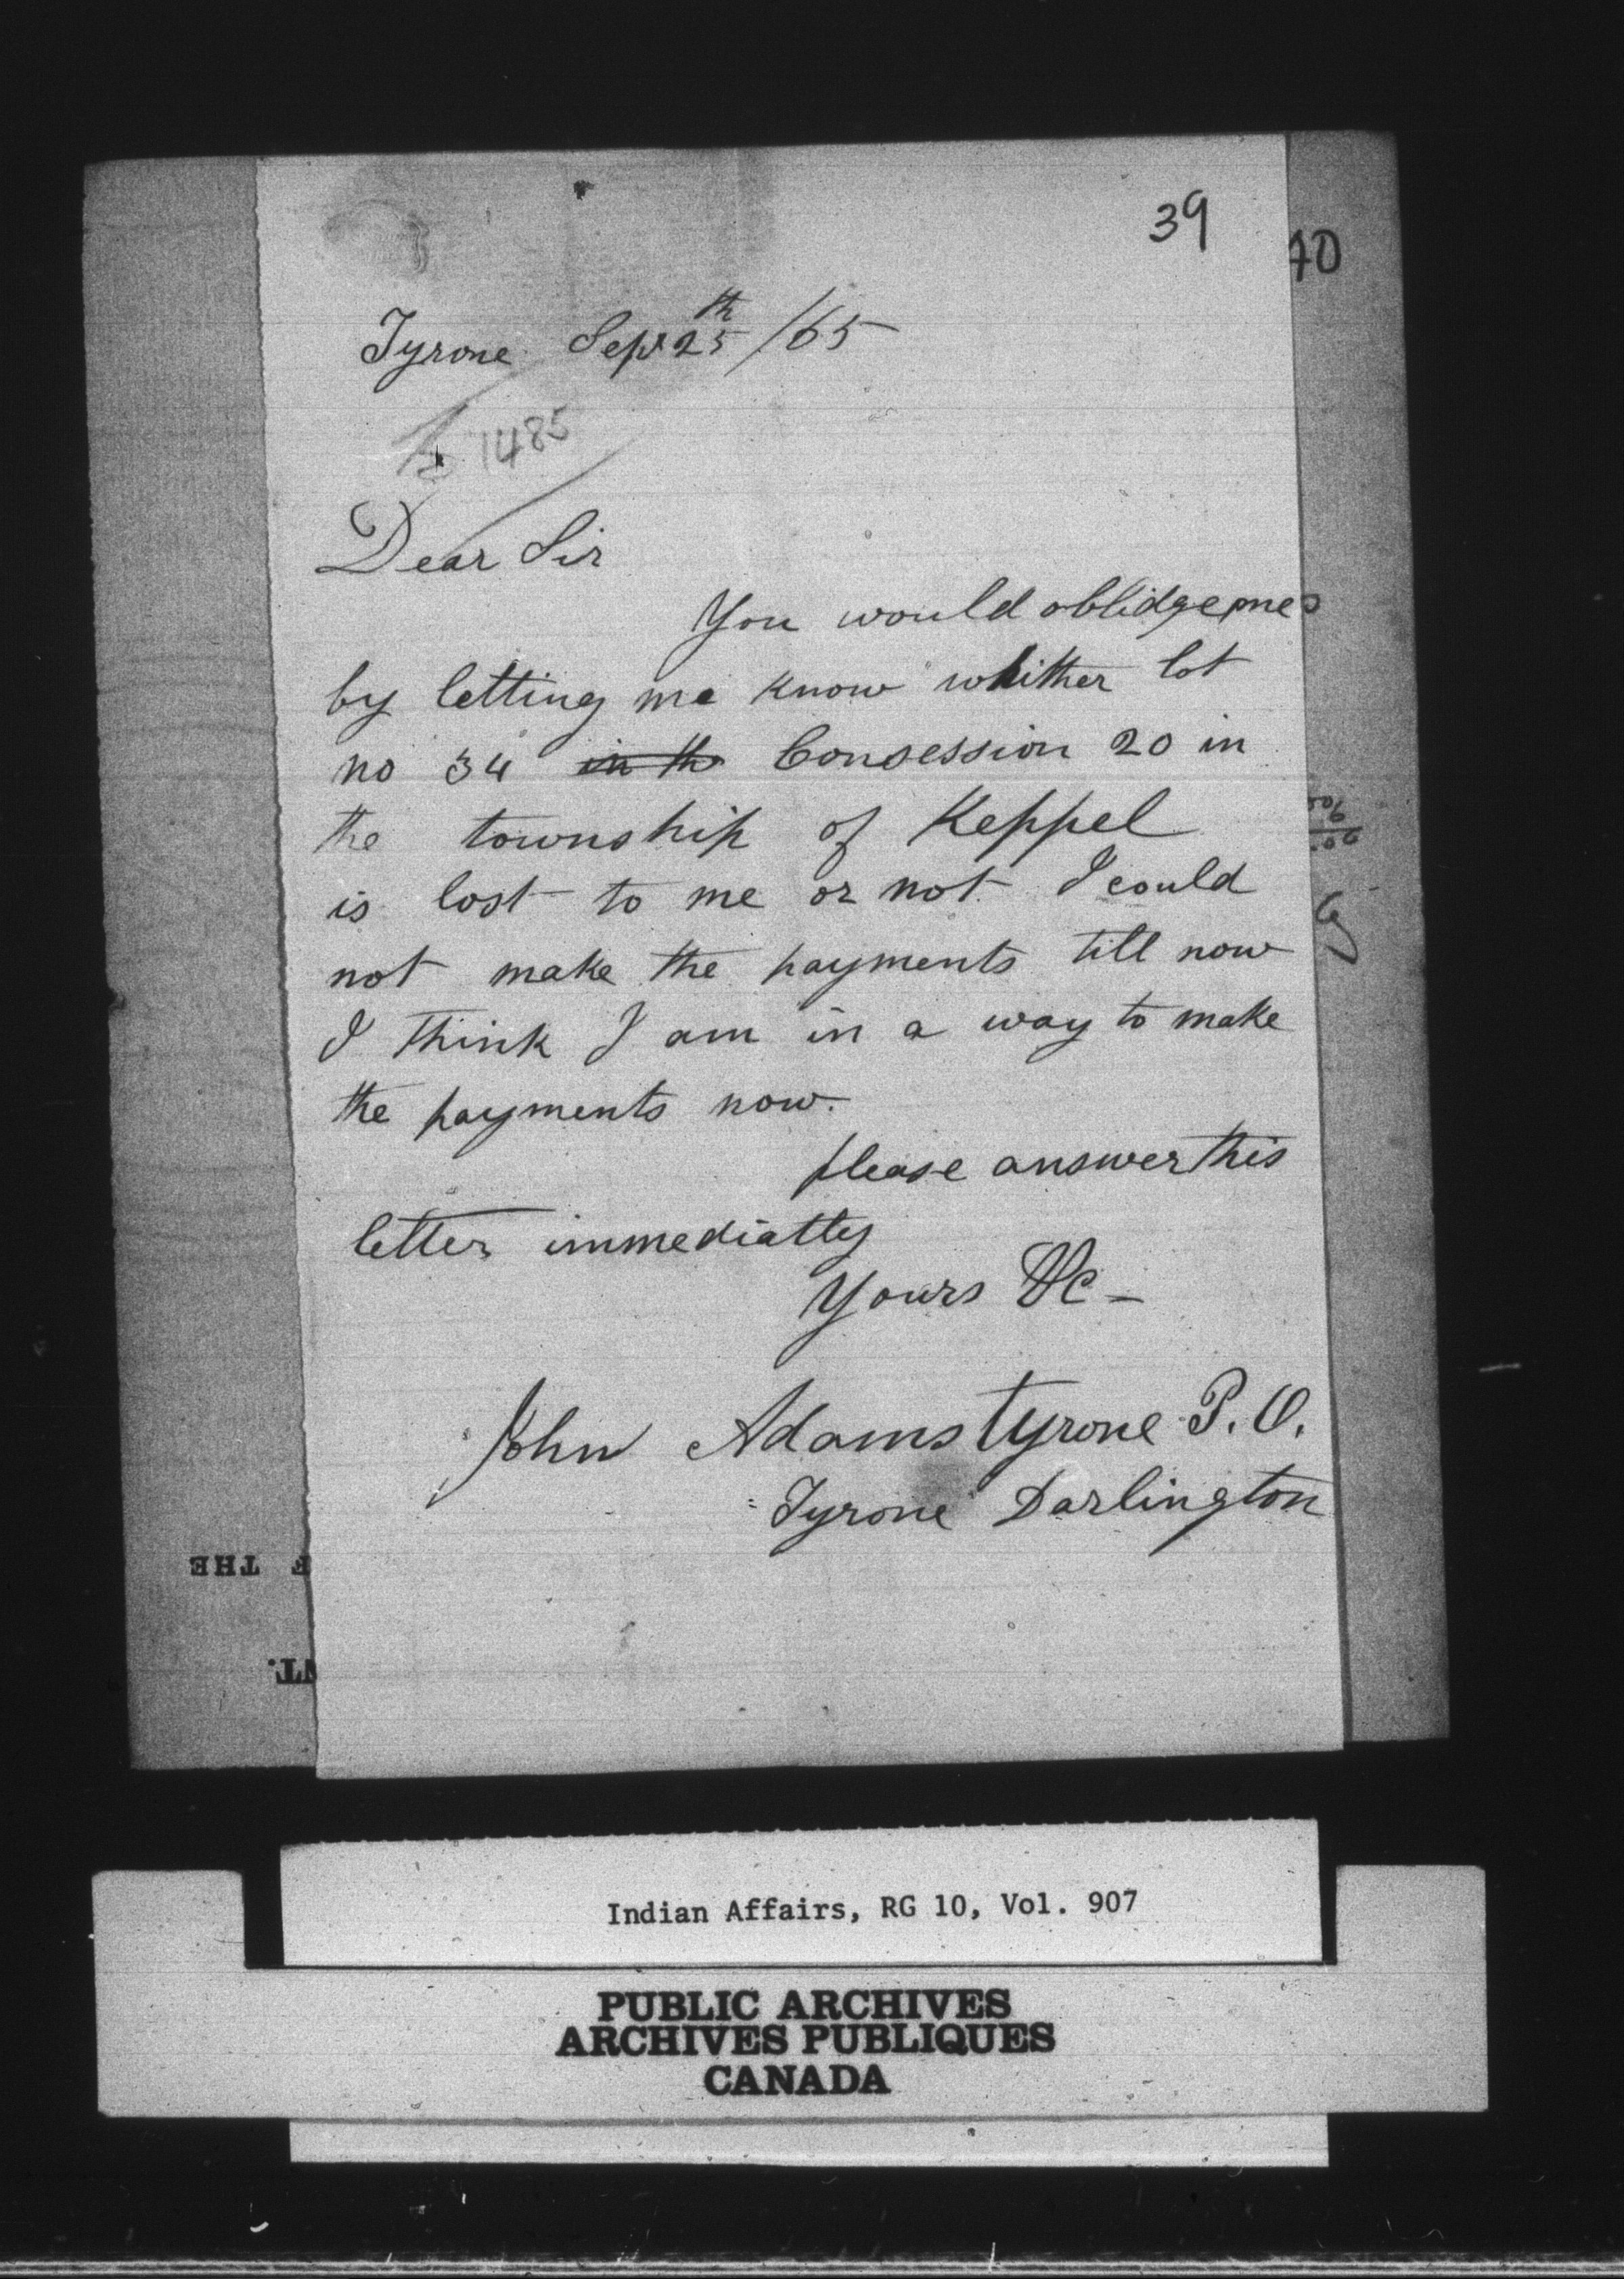 39
40
Tyrone Sept 25th /65
1485
Dear Sir
You would oblidge me
by letting me know whither lot
no 34 in the Consession 20 in
the township of Keppel
is lost to me or not I could
not make the payments till now
I think I am in a way to make
the payments now.
please answer this
letter immediatly
Yours &c -
John Adams tyrone P. O.
Tyrone Darlington
THE
NT.
Indian Affairs, RG 10, Vol. 907
PUBLIC ARCHIVES
ARCHIVES PUBLIQUES
CANADA